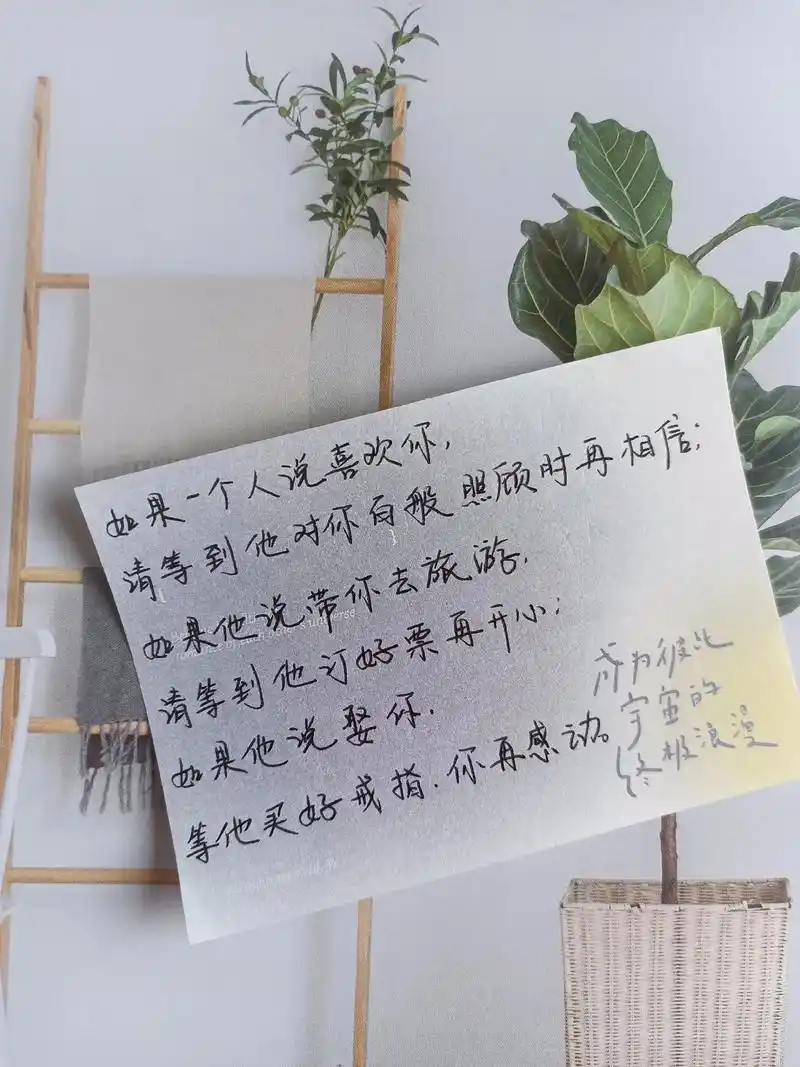 如果一个人说喜欢你，
请等到他对你百般照顾时再相信；
如果他说带你去旅游，
请等到他订好票再开心；
如果他说娶你．
等他买好戒指．你再感动。
成为彼此
宇宙的
终极浪漫
each other's universe